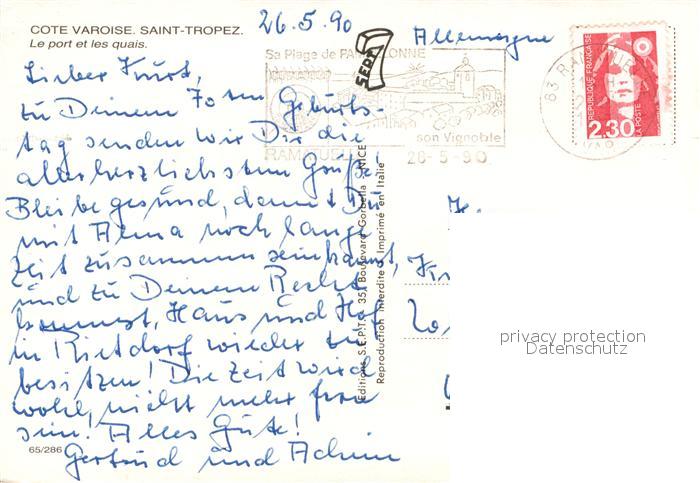 COTE VAROISE. SAINT-TROPEZ.
Le port et les quais.
26.5.90
Allemagne
Sa Plage de PAMPELONNE
son Vignoble
RAMATUELLE
28-5-90
83 RAMATUELLE
VAR
REPUBLIQUE FRANÇAISE
2,30
LA POSTE
SEPT 7
Lieber Kurt,
zu Deinem 70ten Geburts-
tag senden wir Dir die
allerherzlichsten Grüße!
Bleibe gesund, damit Du
mit Alma noch lange
Zeit zusammen sein kannst,
und zu Deinem Recht
kommst, Haus und Hof
in Rietdorf wieder zu
besitzen! Die Zeit wird
wohl nicht mehr fern
sein! Alles Gute!
Gertrud und Achim
65/286
Editions S.E.P.T. 35, Boulevard Gorbella NICE
Reproduction interdite Imprimé en Italie
privacy protection
Datenschutz